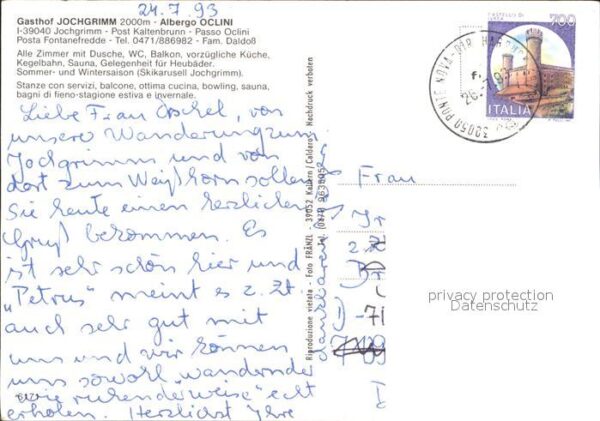 24.7.93
Gasthof JOCHGRIMM 2000m · Albergo OCLINI
I-39040 Jochgrimm - Post Kaltenbrunn - Passo Oclini
Posta Fontanefredde - Tel. 0471/886982 - Fam. Daldoß
Alle Zimmer mit Dusche, WC, Balkon, vorzügliche Küche,
Kegelbahn, Sauna, Gelegenheit für Heubäder.
Sommer- und Wintersaison (Skikarusell Jochgrimm).
Stanze con servizi, balcone, ottima cucina, bowling, sauna,
bagni di fieno-stagione estiva e invernale.
Liebe Frau von
unserer Wanderung zum
Jochgrimm und von
dort zum Weißhorn sollen
Sie heute einen herzlichen
Gruß bekommen. Es
ist sehr schön hier und
„Petrus" meint es z. Zt.
auch sehr gut mit
uns und wir können
uns sowohl „wandernder
wie ruhenderweise" echt
erholen. Herzlichst Ihre
Riproduzione vietata - Foto FRÄNZL - 39052 Kaltern/Caldaro - Nachdruck verboten
700
ITALIA
Frau
D-71
privacy protection
Datenschutz